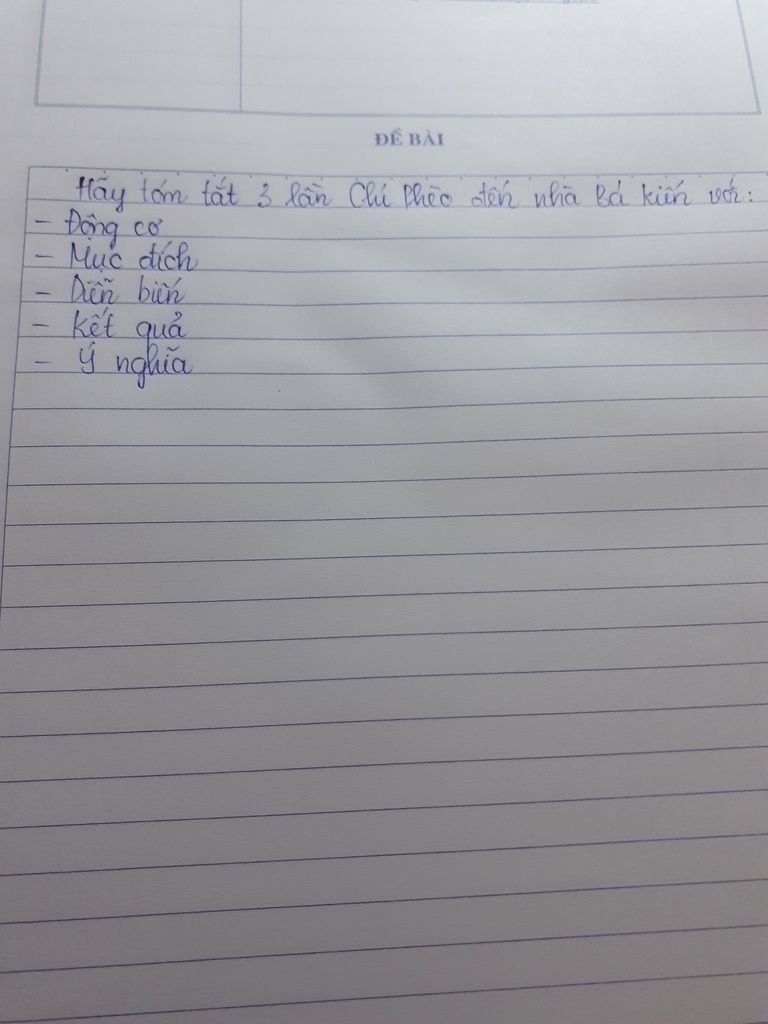 ĐỀ BÀI
Hãy tóm tắt 3 lần Chí Phèo đến nhà Bá Kiến với:
- Động cơ
- Mục đích
- Diễn biến
- Kết quả
- Ý nghĩa